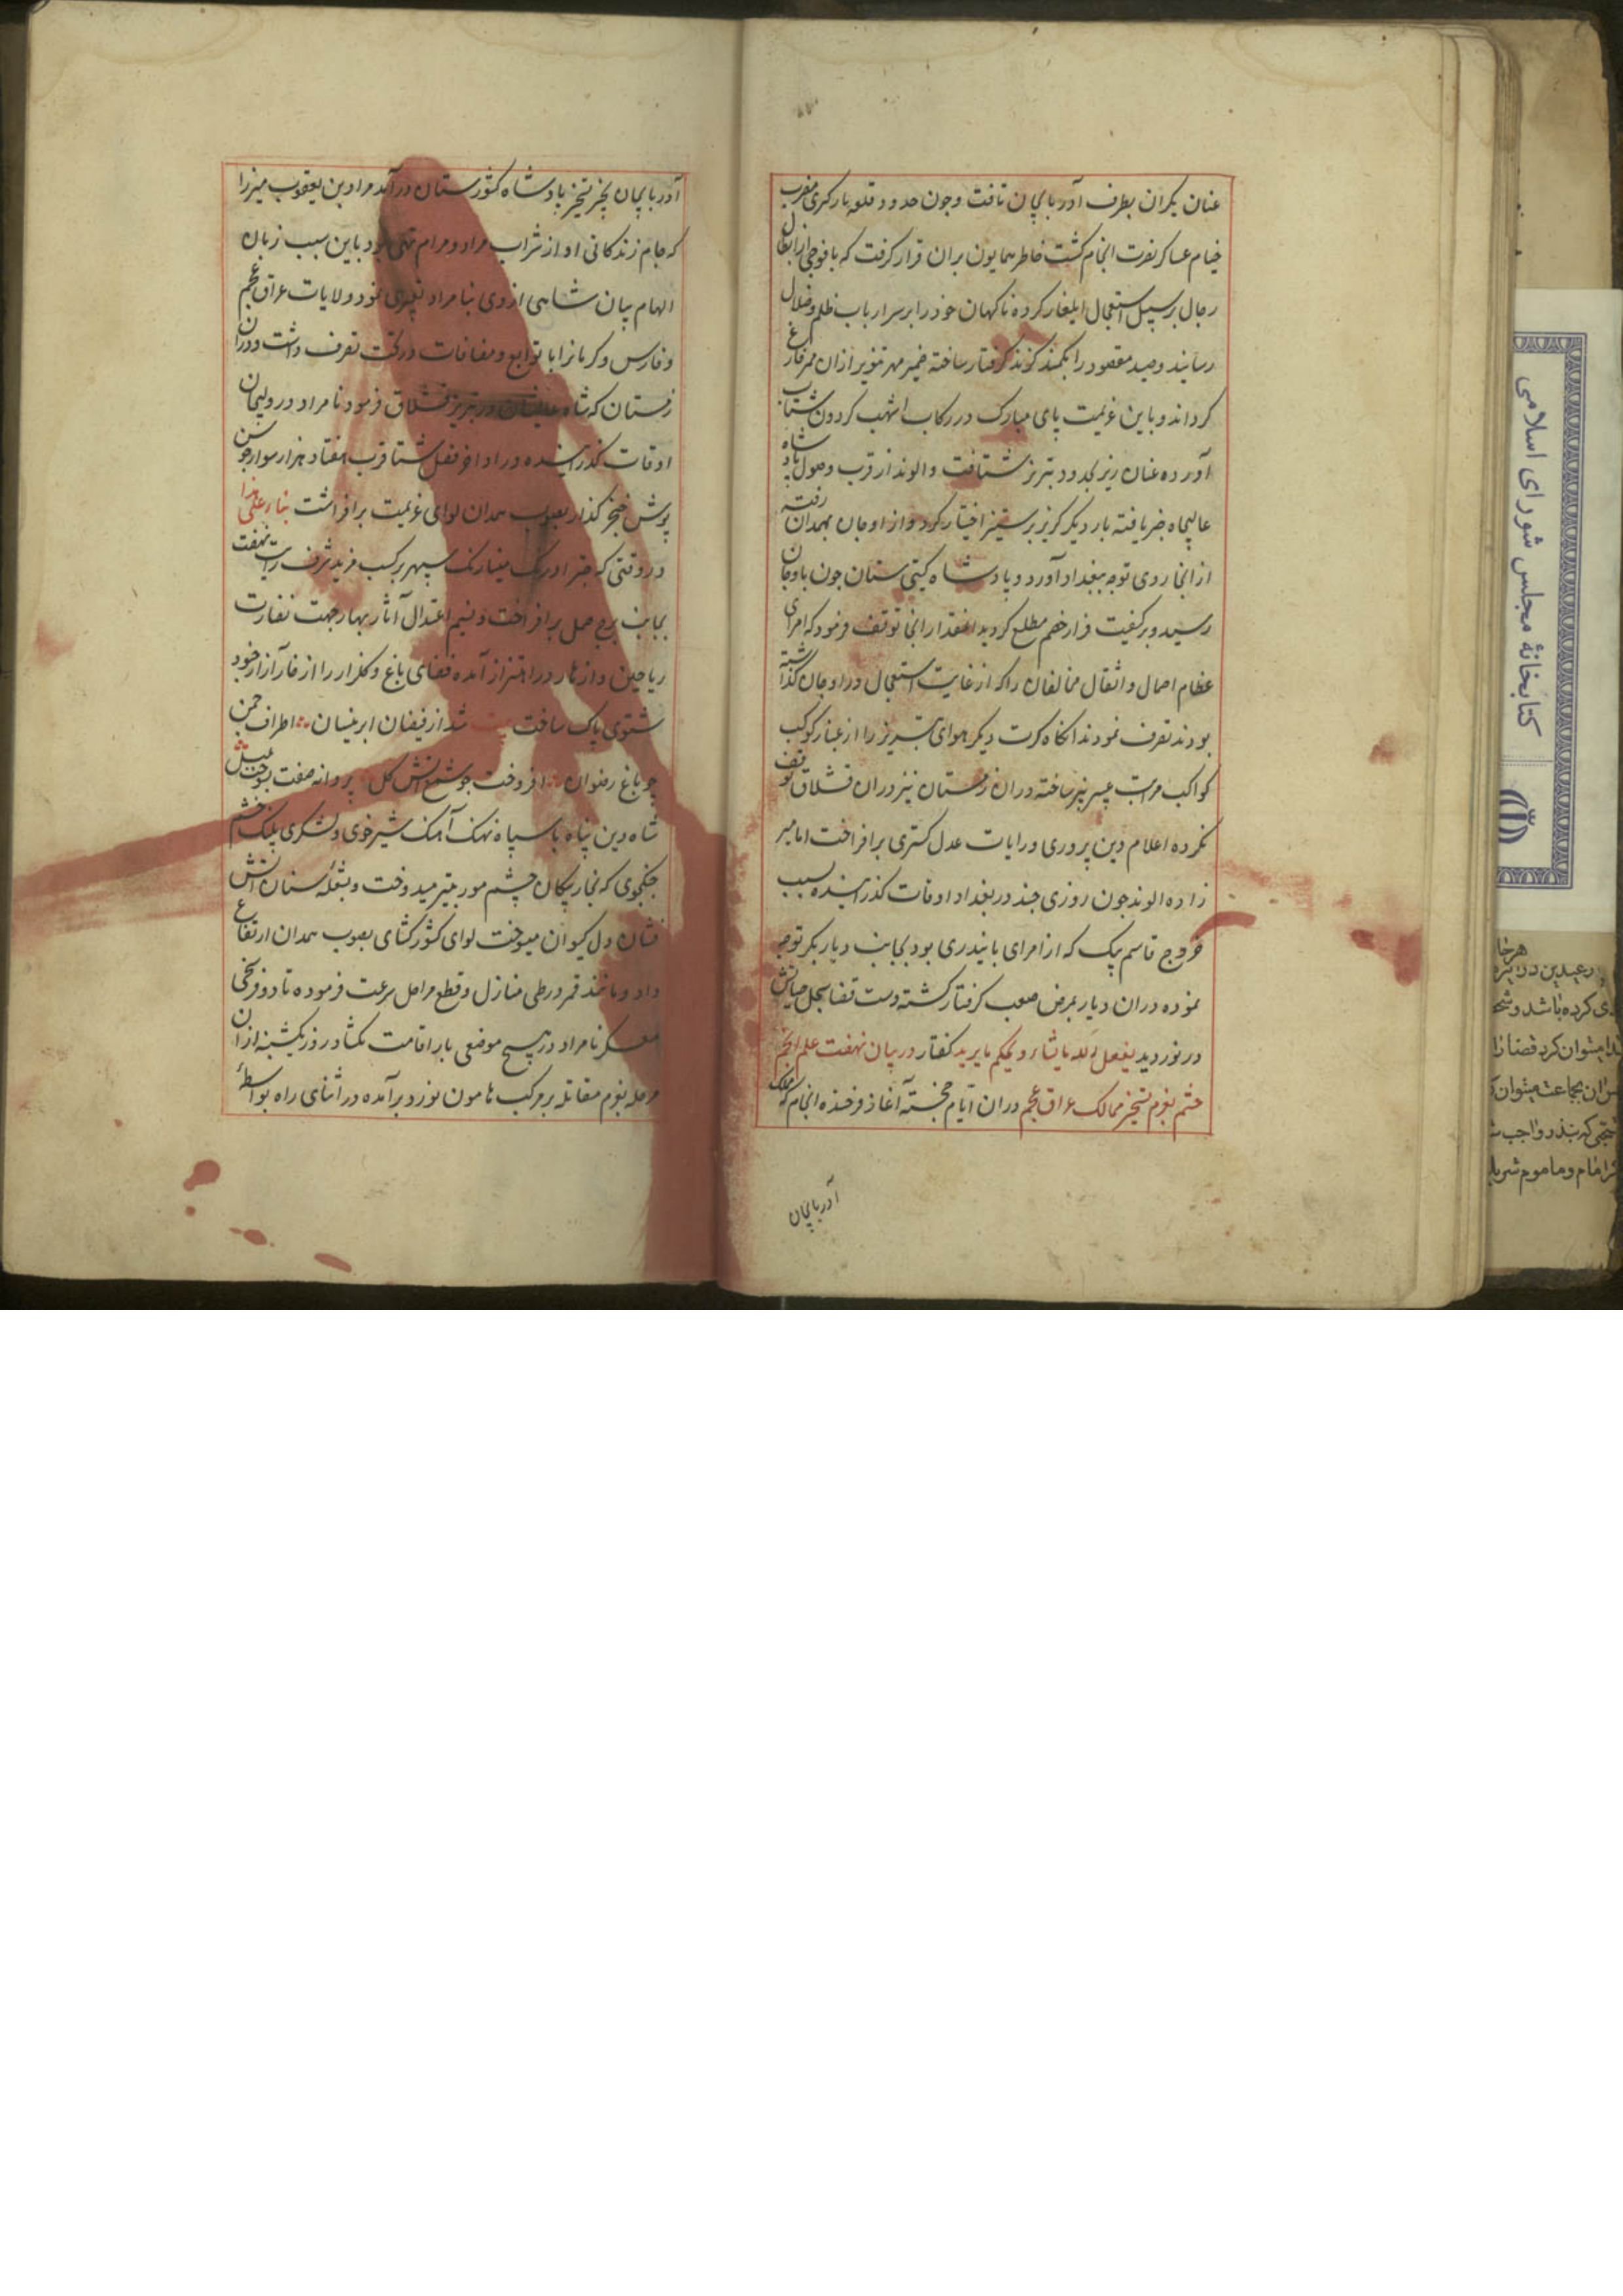 عنان یکران بطرف آذربایجان تافت و چون حدود قلعه بارکری مضرب
خیام عساکر نصرت انجام گشت خاطر همایون بران قرار گرفت که با فوجی از ابطال
رجال بر سبیل استعجال ایلغار کرده ناگهان خود را بر سر ارباب ظلم و ضلال
رساند و صید مقصود را بکمند گزند گرفتار ساخته ضمیر مهر تنویر ازان ممر فارغ
گرداند و باین عزیمت پای مبارک در رکاب اشهب گردون شتاب
آورده عنان ریز بحدود تبریز شتافت و الوند از قرب وصول پادشاه
عالیجاه خبر یافته بار دیگر گریز بر ستیز اختیار کرد و از اوجان بهمدان رفته
از انجا روی توجه ببغداد آورد و پادشاه گیتی ستان چون باوجان
رسید و بر کیفیت فرار خصم مطلع گردید انمقدار انجا توقف فرمود که امرای
عظام احمال و اثقال مخالفان را که از غایت استعجال در اوجان گذاشته
بودند تصرف نمودند انگاه کرت دیگر هوای تبریز را از غبار موکب
کواکب مراتب عبیر بیز ساخته دران زمستان نیز دران قشلاق توقف
نکرده اعلام دین پروری و رایات عدل گستری برافراخت اما میر
زاده الوند چون روزی چند در بغداد اوقات گذرانیده بسبب
خروج قاسم بیک که از امرای بایندری بود بجانب دیار بکر توجه
نموده دران دیار بمرض صعب گرفتار گشته دست قضا سجل حیاتش
در نوردید یفعل الله ما یشاء و یحکم ما یرید گفتار در بیان نهضت علم انجم
حشم بعزم تسخیر ممالک عراق عجم دران ایام خجسته آغاز فرخنده انجام که ملک
آذربایجان
آذربایجان بحیز تسخیر پادشاه کشورستان درآمد مراد بن یعقوب میرزا
که جام زندگانی او از شراب مراد و مرام تهی بود باین سبب زبان
الهام بیان شاهی ازوی بنامراد تعبیر می نمود ولایات عراق عجم
و فارس و کرمانرا با توابع و مضافات در تحت تصرف داشت و دران
زمستان که شاه عالیشان در تبریز قشلاق فرمود نامراد در ولیجان
اوقات گذرانیده در اواخر فصل شتا قرب هفتاد هزار سوار جوشن
پوش خنجر گذار بصوب همدان لوای عزیمت برافراشت بناء علی هذا
در وقتی که چتر اورنک مینارنک سپهر بر کسب مزید شرف رایت نهضت
بجانب برج حمل برافراخت و نسیم اعتدال آثار بهار جهت نضارت
ریاحین و ازهار در اهتزاز آمده فضای باغ و گلزار را از خار آزار خود
شتوی پاک ساخت بیت شد از فیضان ابر نیسان اطراف چمن
چو باغ رضوان افروخت چو شمع آتش گل پروانه صفت بسوخت بلبل
شاه دین پناه با سپاه نهنک آهنک شیر خوی و لشکری پلنک خشم
جنگجوی که بخار پیکان چشم مور بتیر میدوخت و بشعله سنان آتش
فشان دل کیوان میسوخت لوای کشورگشای بصوب همدان ارتفاع
داد و مانند قمر در طی منازل و قطع مراحل سرعت فرموده تا دو فرسخی
معسکر نامراد در هیچ موضعی بار اقامت نگشاد روز یکشنبه ازان
مرحله بعزم مقابله بر مرکب هامون نورد برآمده در اثنای راه بواسطه
کتابخانهٔ مجلس شورای اسلامی